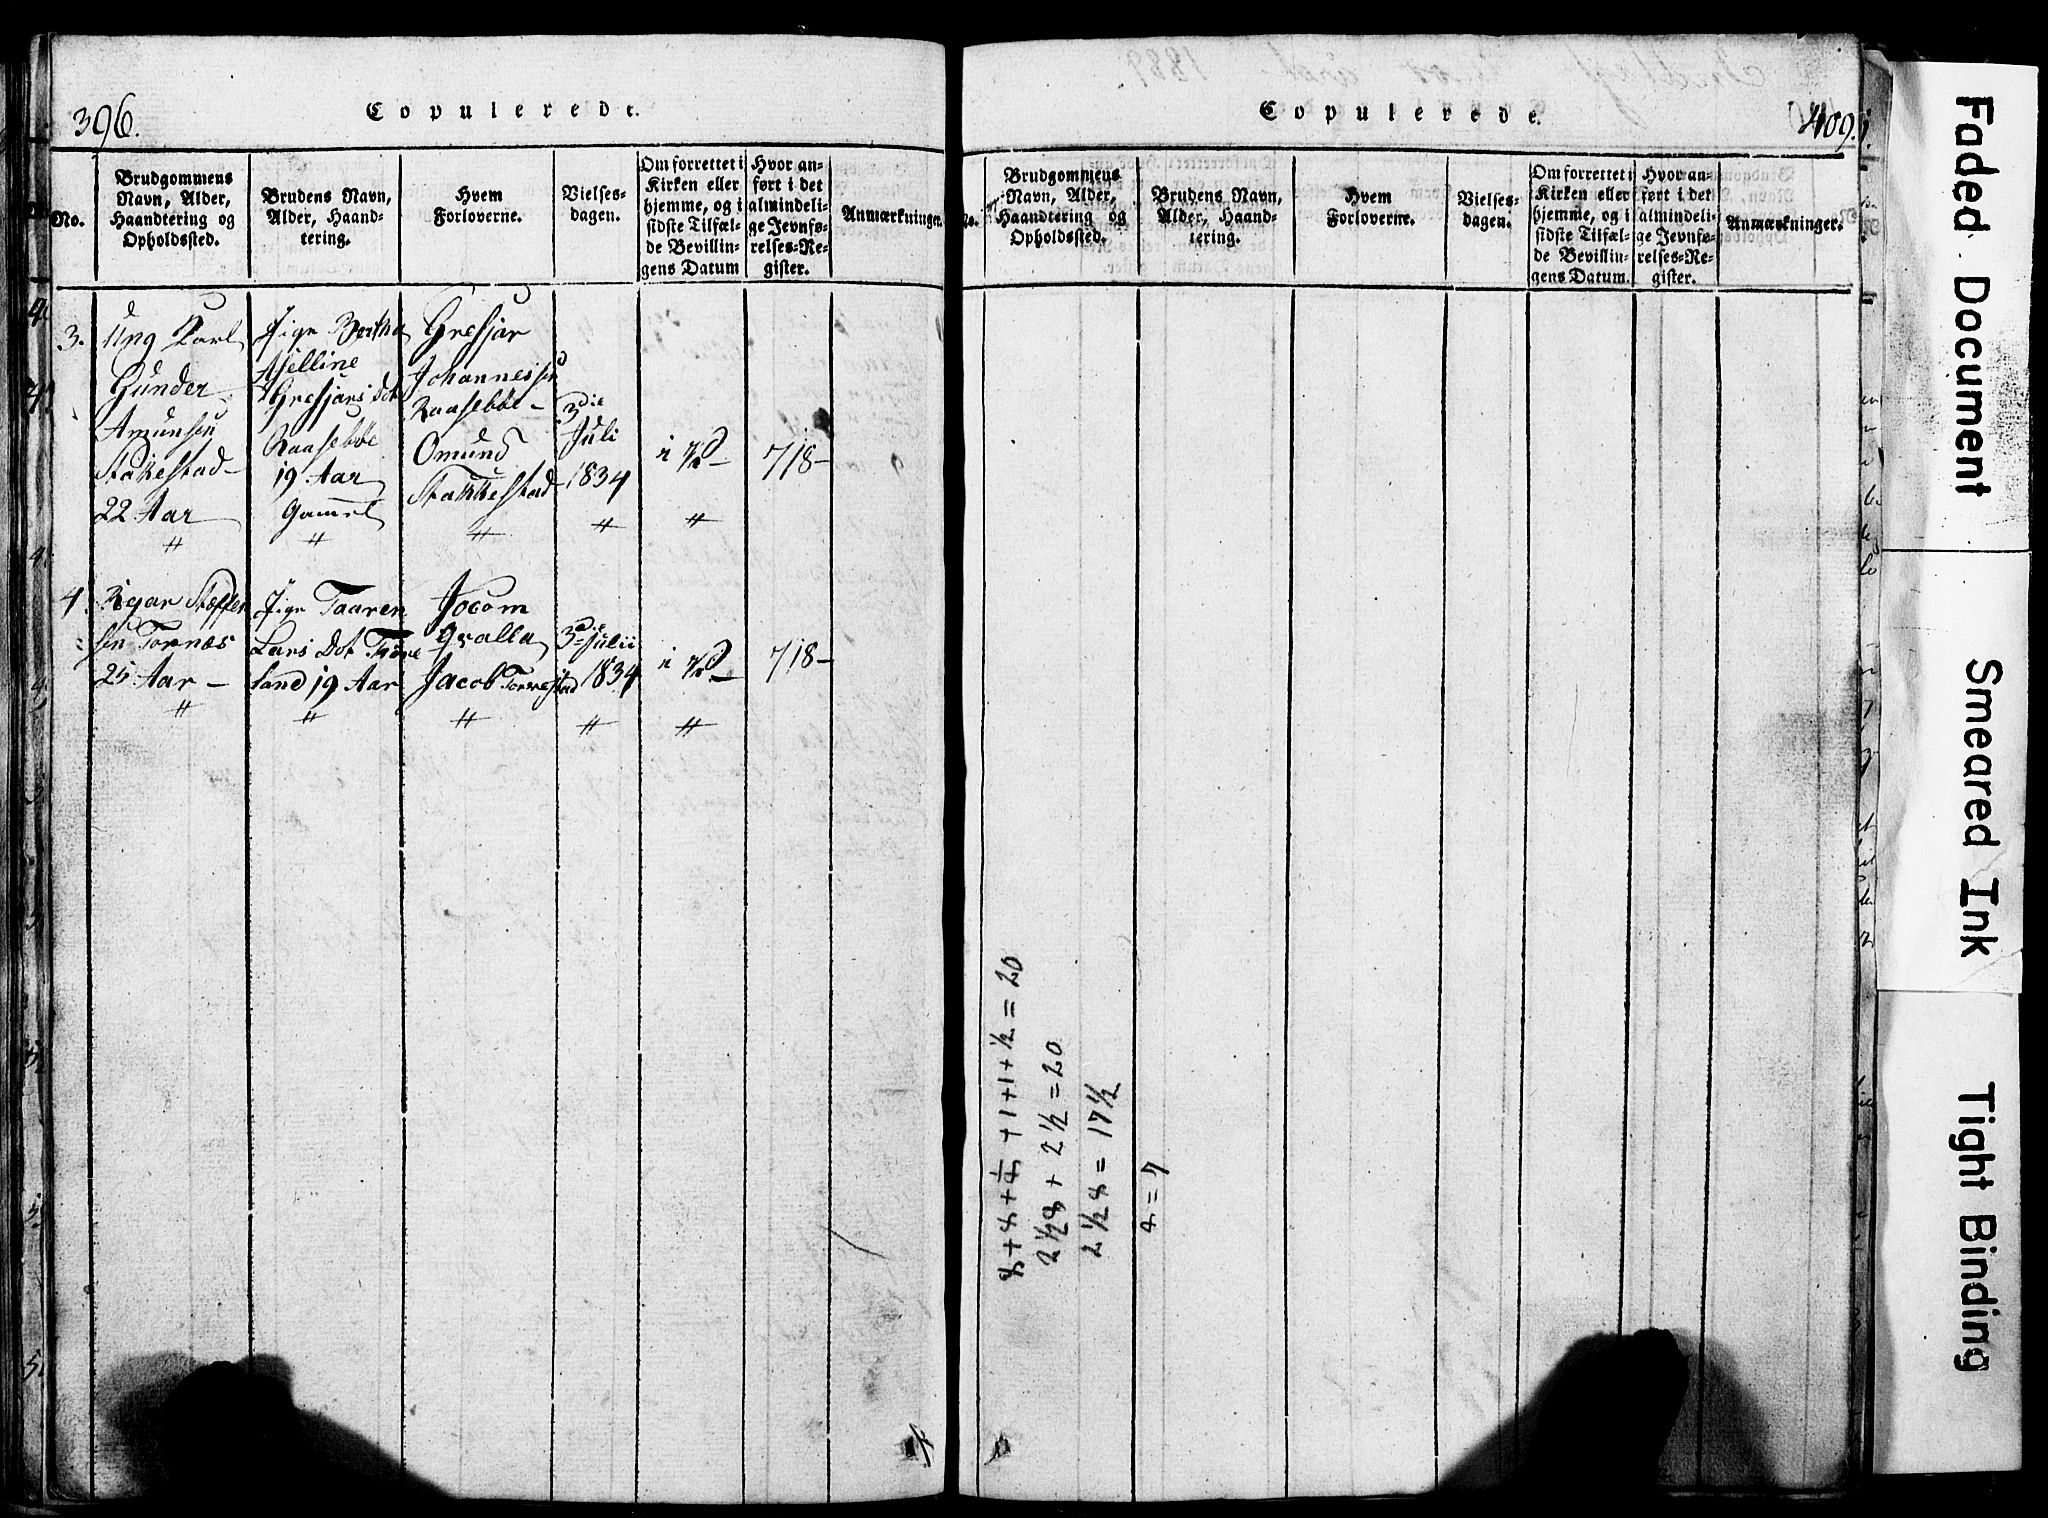 396.
Copulerede.
No.
Brudgommens
Navn, Alder,
Haandtering og
Opholdssted.
Brudens Navn,
Alder, Haand-
tering.
Hvem
Forloverne.
Vielses-
dagen.
Om forrettet i
Kirken eller
hjemme, og i
sidste Tilfæl-
de Bevillin-
gens Datum
Hvor an-
ført i det
almindeli-
ge Jevnfø-
relses-Re-
gister.
Anmærkninger.
3.
Ung Karl
Gunder
Amunsen
Stakestad
22 Aar
"
Pige Bertha
Grefjars Dot
Raasebbe
19 Aar
Gamel
"
Grefjar
Johannessen
Raasebbe -
Omund
Stakkestad
"
3die
Juli
1834
"
i K
"
718-
4.
Steffen
sen Tornæs
25 Aar -
"
Pige Taaren
Lars Dot
land 19 Aar
"
Jocom
Qvalla
Jacob Tornestad
"
3die Julii
1834
"
i K
"
718-
Copulerede.
409.
No.
Brudgommens
Navn, Alder,
Haandtering og
Opholdssted.
Brudens Navn,
Alder, Haand-
tering.
Hvem
Forloverne.
Vielses-
dagen.
Om forrettet i
Kirken eller
hjemme, og i
sidste Tilfæl-
de Bevillin-
gens Datum.
Hvor an-
ført i det
almindeli-
ge Jevnfø-
relses-Re-
gister.
Anmærkninger.
8+8+8/4+1+1+½=20
2½8+2½=20
2½8=17½
8=7
Faded Document
Smeared Ink
Tight Binding